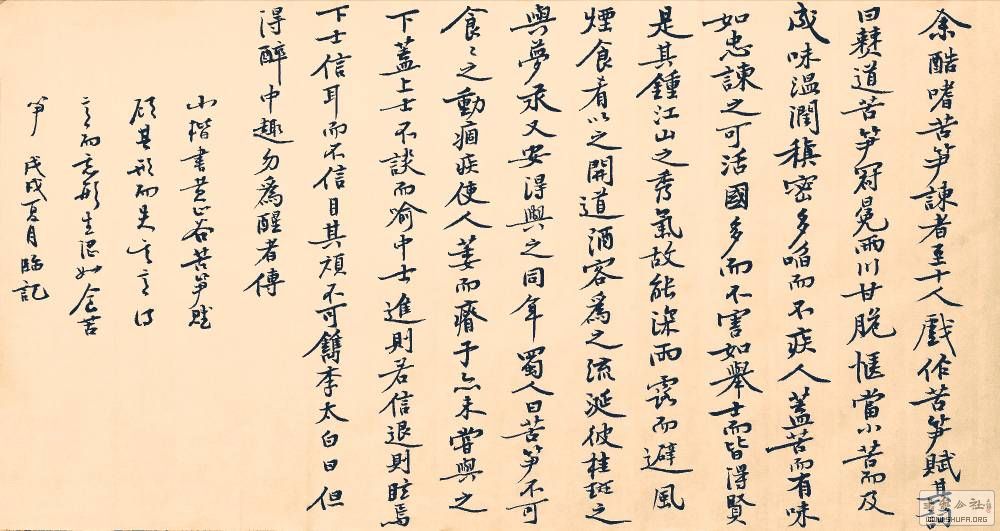 余酷嗜苦笋諫者至十人戲作苦笋賦其詞
曰僰道苦笋冠冕兩川甘脆愜當小苦而及
成味溫潤稹密多啗而不疾人蓋苦而有味
如忠諫之可活國多而不害如舉士而皆得賢
是其鍾江山之秀氣故能深雨露而避風
煙食肴以之開道酒客為之流涎彼桂斑之
與夢汞又安得與之同年蜀人曰苦笋不可
食〻之動痼疾使人萎而瘠予亦未嘗與之
下蓋上士不談而喻中士進則若信退則眩焉
下士信耳而不信目其頑不可鐫李太白曰但
得醉中趣勿為醒者傳
小楷書黃山谷苦笋賦
顧其形而
言而忘形如食苦
笋 戊戌夏月臨記
WWW.SHUFA.ORG